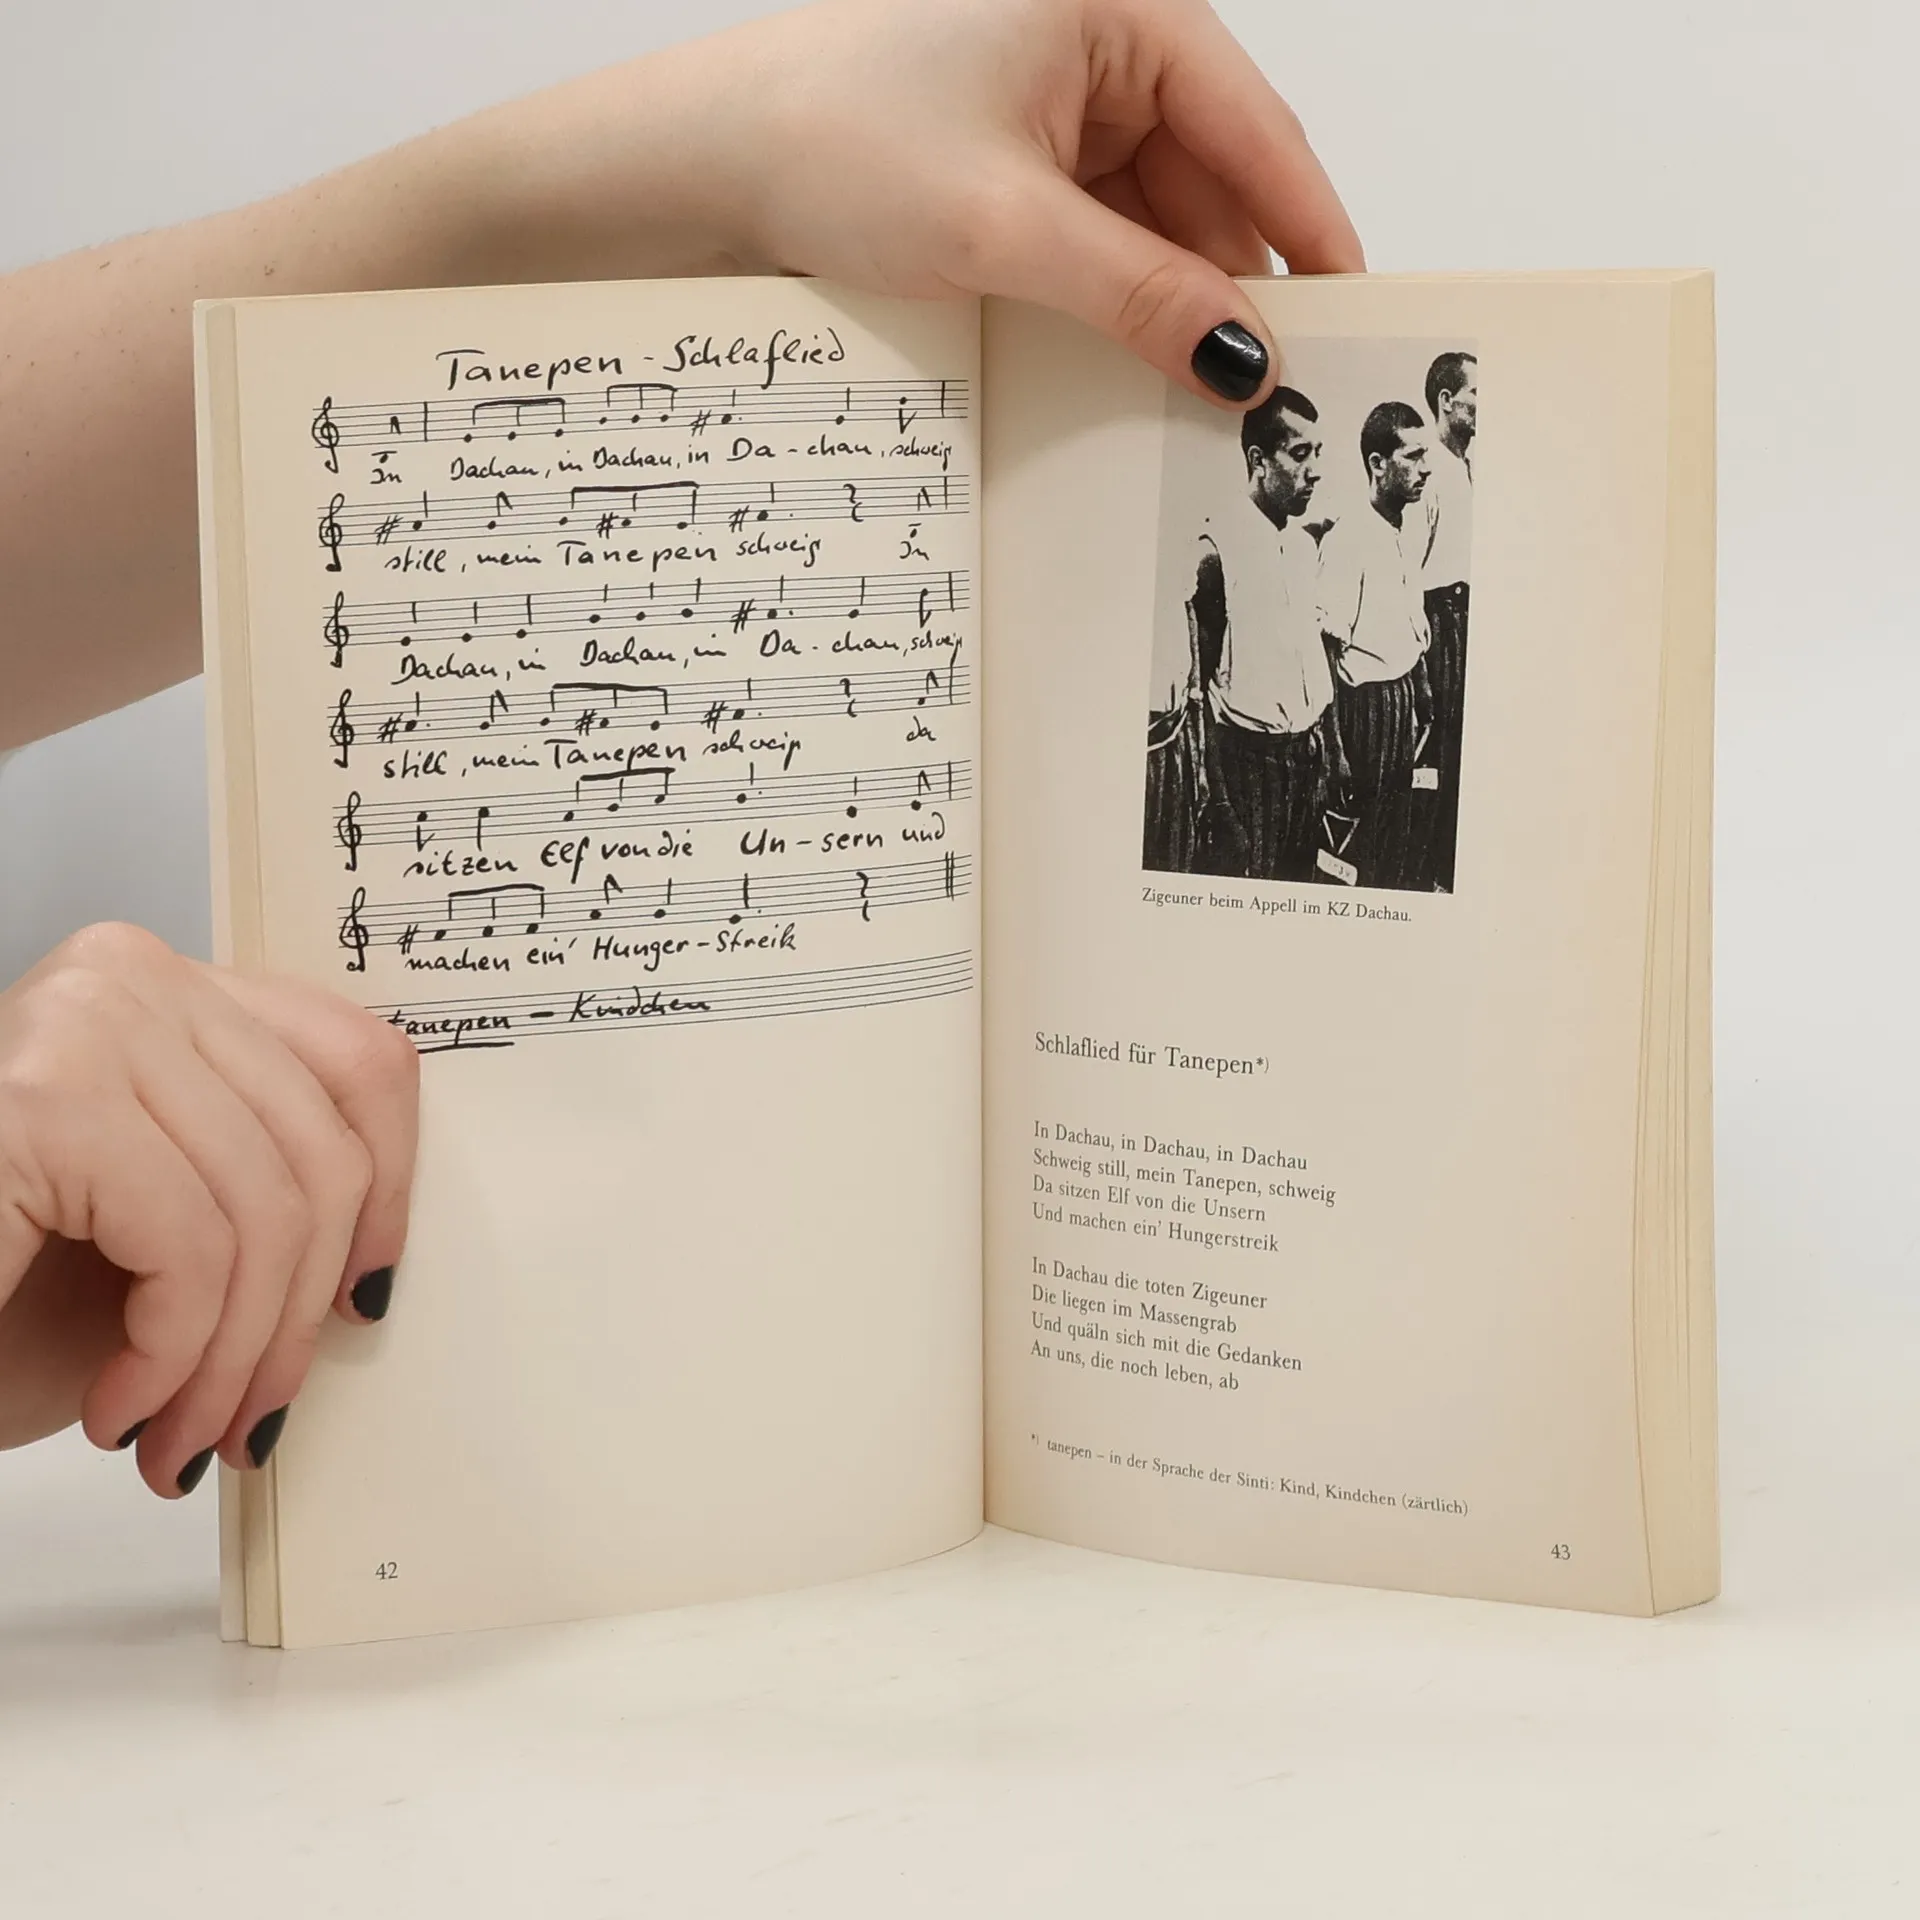 Tanepen - Schlaflied
In Dachau, in Dachau, in Da - chau, schweig
still, mein Tanepen schweig In
Dachau, in Dachau, in Da - chau, schweig
still, mein Tanepen schweig da
sitzen Elf von die Un - sern und
machen ein' Hunger - Streik
tanepen - Kindchen
42
Zigeuner beim Appell im KZ Dachau.
Schlaflied für Tanepen*)
In Dachau, in Dachau, in Dachau
Schweig still, mein Tanepen, schweig
Da sitzen Elf von die Unsern
Und machen ein' Hungerstreik
In Dachau die toten Zigeuner
Die liegen im Massengrab
Und quäln sich mit die Gedanken
An uns, die noch leben, ab
*) tanepen – in der Sprache der Sinti: Kind, Kindchen (zärtlich)
43